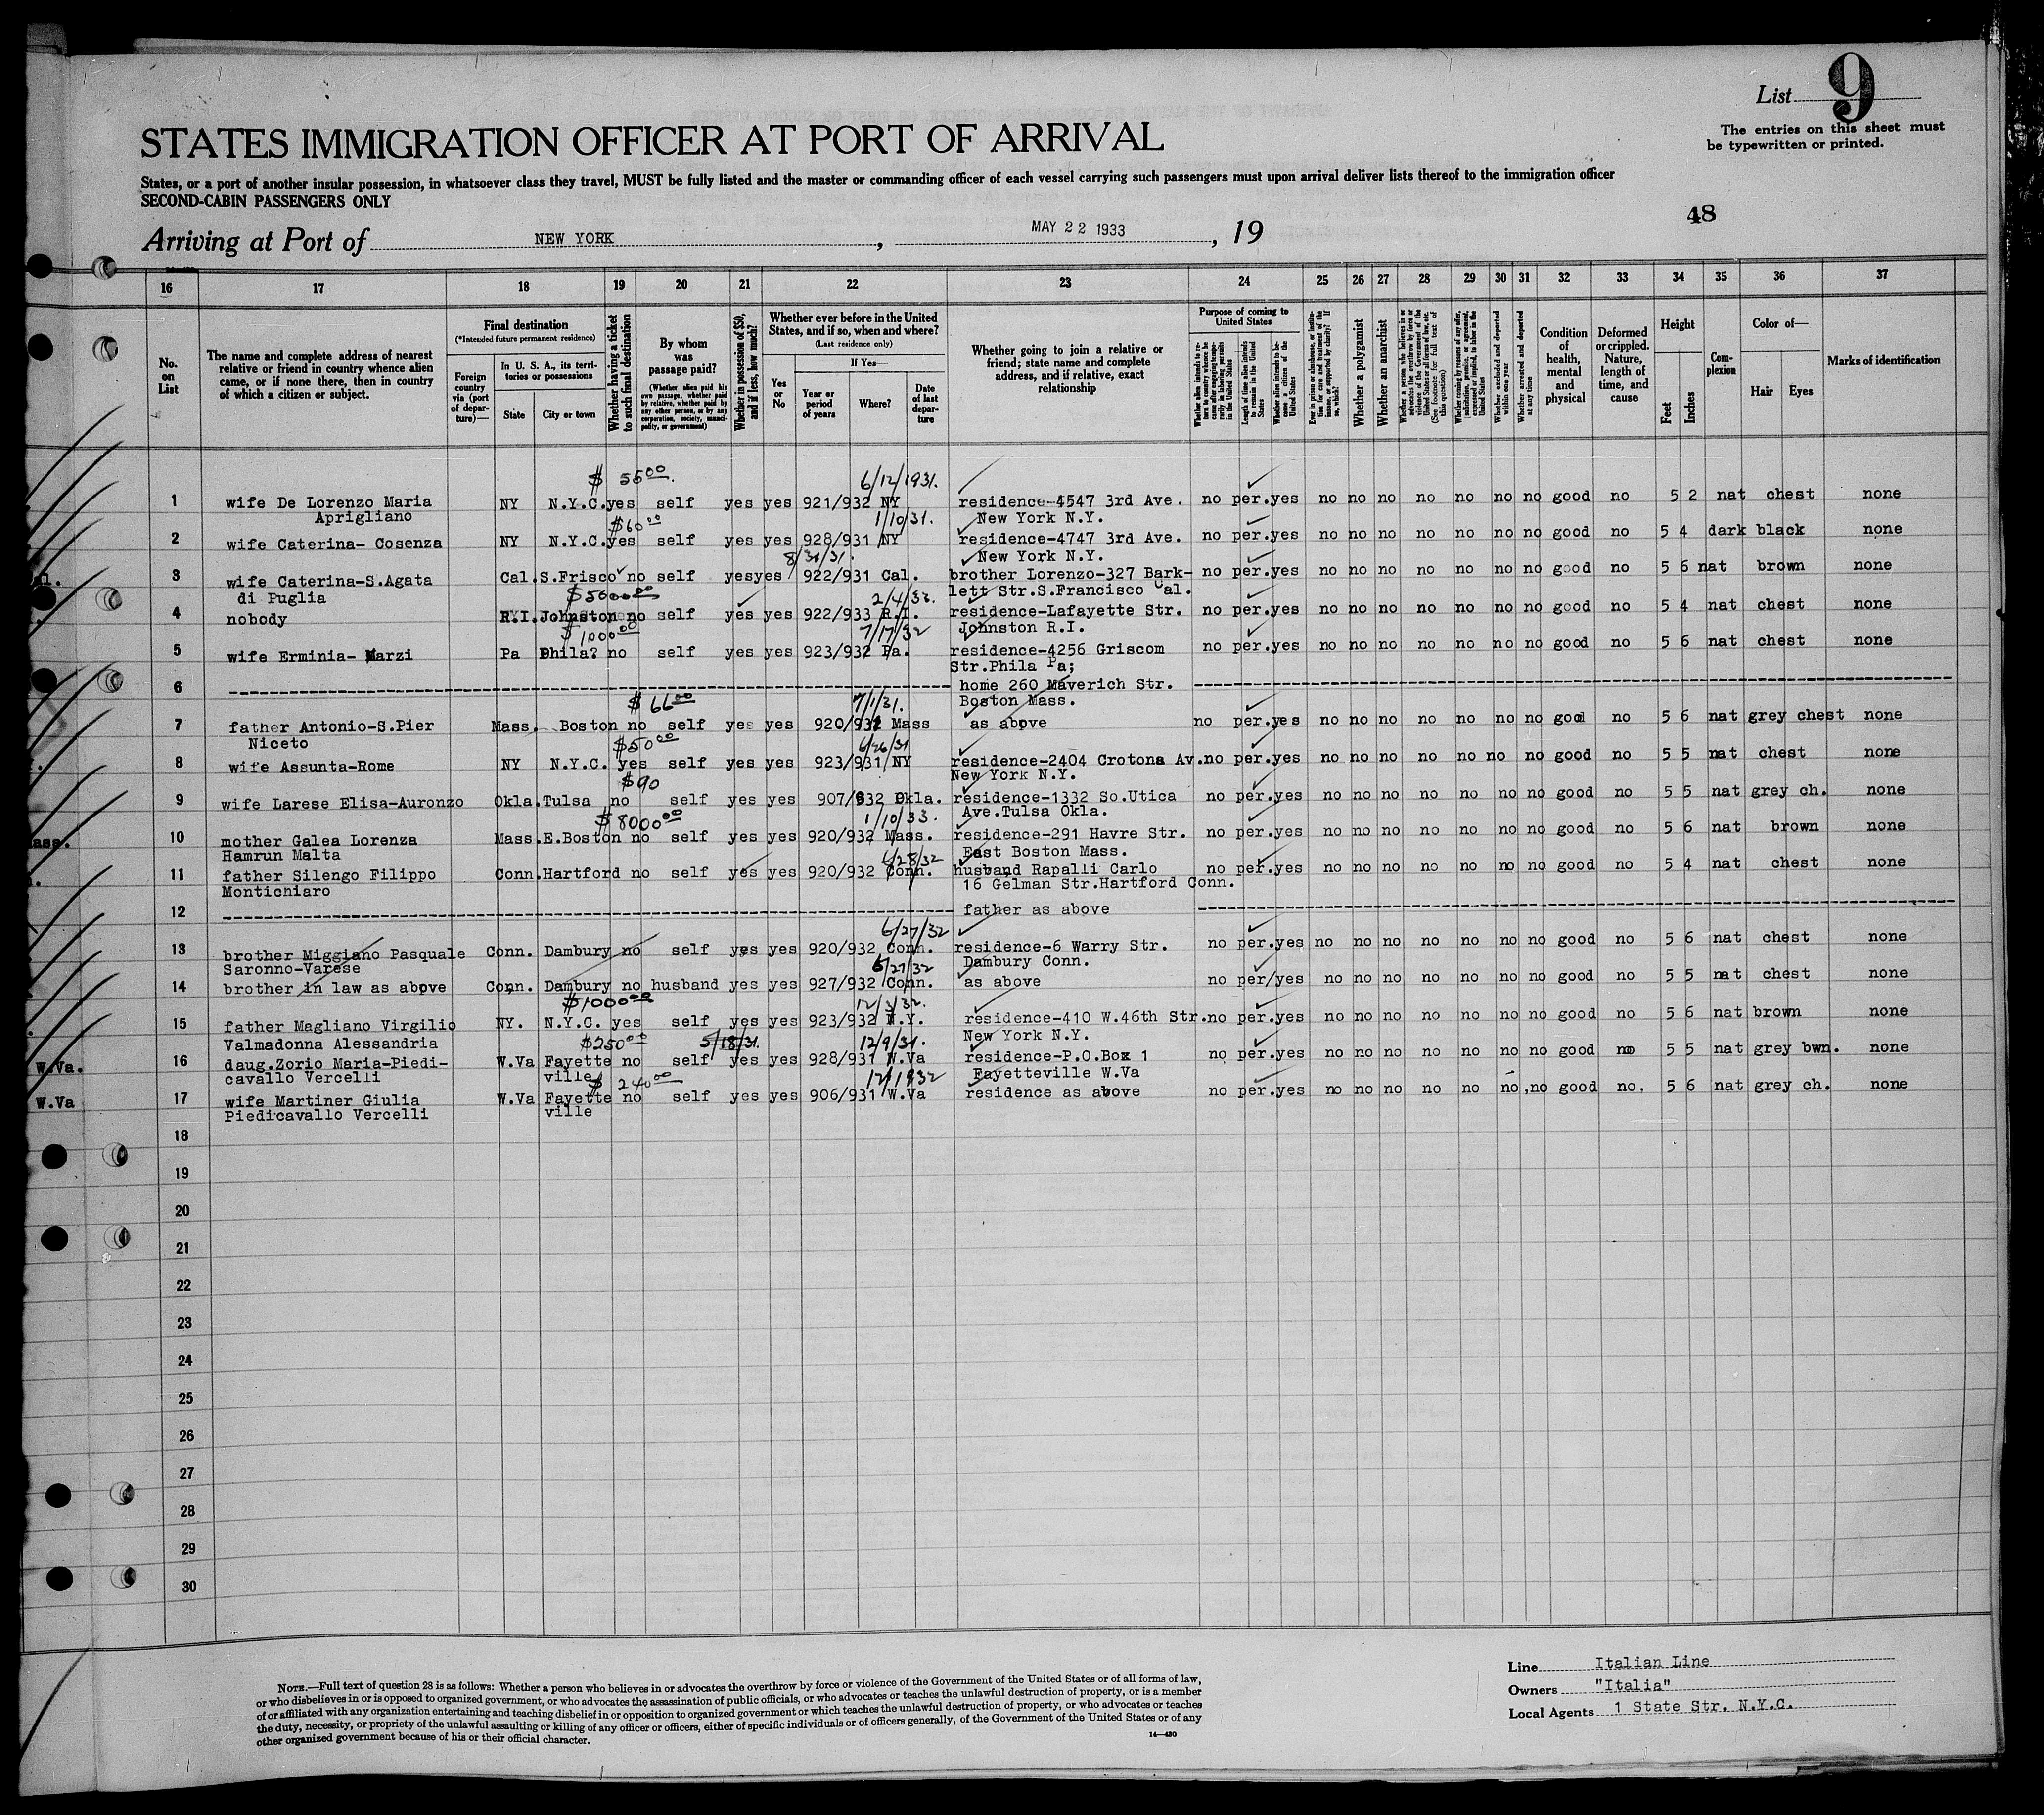 List 9
The entries on this sheet must
be typewritten or printed.
STATES IMMIGRATION OFFICER AT PORT OF ARRIVAL
States, or a port of another insular possession, in whatsoever class they travel, MUST be fully listed and the master or commanding officer of each vessel carrying such passengers must upon arrival deliver lists thereof to the immigration officer
SECOND-CABIN PASSENGERS ONLY
48
Arriving at Port of NEW YORK, MAY 22 1933, 19
16 17 18 19 20 21 22 23 24 25 26 27 28 29 30 31 32 33 34 35 36 37
No. on List
The name and complete address of nearest
relative or friend in country whence alien
came, or if none there, then in country
of which a citizen or subject.
Final destination
(*Intended future permanent residence)
Foreign country via (port of departure)—
In U. S. A., its territories or possessions
State
City or town
Whether having a ticket to such final destination
By whom was passage paid?
(Whether alien paid his own passage, whether paid by relative, whether paid by any other person, or by any corporation, society, municipality, or government)
Whether in possession of $50, and if less, how much?
Whether ever before in the United States, and if so, when and where?
(Last residence only)
Yes or No
If Yes—
Year or period of years
Where?
Date of last departure
Whether going to join a relative or
friend; state name and complete
address, and if relative, exact
relationship
Purpose of coming to United States
Length of time alien intends to remain in the United States
Whether alien intends to become a citizen of the United States
Whether a polygamist
Whether an anarchist
Whether excluded and deported within one year
Whether arrested and deported at any time
Condition of health, mental and physical
Deformed or crippled. Nature, length of time, and cause
Height
Feet
Inches
Complexion
Color of—
Hair
Eyes
Marks of identification
$ 55.00 6/12/1931.
1 wife De Lorenzo Maria NY N.Y.C. yes self yes yes 921/932 NY residence-4547 3rd Ave. no per. yes no no no no no no no good no 5 2 nat chest none
Aprigliano New York N.Y.
$60.00 1/10/31.
2 wife Caterina- Cosenza NY N.Y.C. yes self yes yes 928/931 NY residence-4747 3rd Ave. no per. yes no no no no no no no good no 5 4 dark black none
8/31/31. New York N.Y.
al. 3 wife Caterina-S.Agata Cal. S.Frisco no self yes yes 922/931 Cal. brother Lorenzo-327 Bark- no per. yes no no no no no no no good no 5 6 nat brown none
di Puglia lett Str.S.Francisco Cal.
$5000.00 2/4/33.
4 nobody R.I. Johnston no self yes yes 922/933 R.I. residence-Lafayette Str. no per. yes no no no no no no no good no 5 4 nat chest none
Johnston R.I.
$1000.00 7/17/32
5 wife Erminia- Marzi Pa Phila? no self yes yes 923/932 Pa. residence-4256 Griscom no per. yes no no no no no no no good no 5 6 nat chest none
Str.Phila Pa;
6 home 260 Maverich Str.
$ 66.00 7/1/31. Boston Mass.
7 father Antonio-S.Pier Mass. Boston no self yes yes 920/931 Mass as above no per. yes no no no no no no no good no 5 6 nat grey chest none
Niceto
$50.00 6/26/31
8 wife Assunta-Rome NY N.Y.C. yes self yes yes 923/931 NY residence-2404 Crotona Av. no per. yes no no no no no no no good no 5 5 nat chest none
New York N.Y.
$90
9 wife Larese Elisa-Auronzo Okla. Tulsa no self yes yes 907/932 Okla. residence-1332 So.Utica no per. yes no no no no no no no good no 5 5 nat grey ch. none
Ave.Tulsa Okla.
$8000.00 1/10/33.
ass. 10 mother Galea Lorenza Mass. E.Boston no self yes yes 920/932 Mass. residence-291 Havre Str. no per. yes no no no no no no no good no 5 6 nat brown none
Hamrun Malta East Boston Mass.
6/28/32
11 father Silengo Filippo Conn. Hartford no self yes yes 920/932 Conn. husband Rapalli Carlo no per. yes no no no no no no no good no 5 4 nat chest none
Montichiaro 16 Gelman Str.Hartford Conn.
12 father as above
6/27/32
13 brother Miggiano Pasquale Conn. Dambury no self yes yes 920/932 Conn. residence-6 Warry Str. no per. yes no no no no no no no good no 5 6 nat chest none
Saronno-Varese Dambury Conn.
6/27/32
14 brother in law as above Conn. Dambury no husband yes yes 927/932 Conn. as above no per/yes no no no no no no no good no 5 5 nat chest none
$1000.00 12/3/32.
15 father Magliano Virgilio NY. N.Y.C. yes self yes yes 923/932 N.Y. residence-410 W.46th Str. no per. yes no no no no no no no good no 5 6 nat brown none
Valmadonna Alessandria New York N.Y.
$250.00 5/18/31. 12/9/31.
W.Va. 16 daug.Zorio Maria-Piedi- W.Va Fayette no self yes yes 928/931 W.Va residence-P.O.Box 1 no per. yes no no no no no no no good no 5 5 nat grey bwn. none
cavallo Vercelli ville Fayetteville W.Va
$ 240.00 12/1/1932
W.Va 17 wife Martiner Giulia W.Va Fayette no self yes yes 906/931 W.Va residence as above no per. yes no no no no no no no good no. 5 6 nat grey ch. none
Piedicavallo Vercelli ville
18
19
20
21
22
23
24
25
26
27
28
29
30
NOTE.—Full text of question 28 is as follows: Whether a person who believes in or advocates the overthrow by force or violence of the Government of the United States or of all forms of law,
or who disbelieves in or is opposed to organized government, or who advocates the assassination of public officials, or who advocates or teaches the unlawful destruction of property, or is a member
of or affiliated with any organization entertaining and teaching disbelief in or opposition to organized government or which teaches the unlawful destruction of property, or who advocates or teaches
the duty, necessity, or propriety of the unlawful assaulting or killing of any officer or officers, either of specific individuals or of officers generally, of the Government of the United States or of any
other organized government because of his or their official character.
14—430
Line Italian Line
Owners "Italia"
Local Agents 1 State Str. N.Y.C.